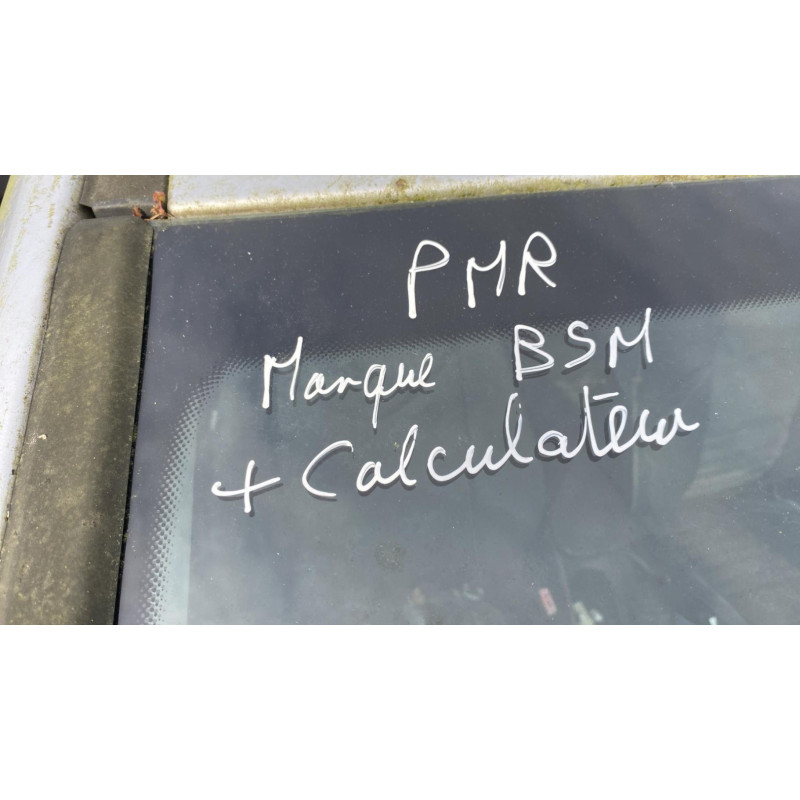 PMR
Manque BSM
+ Calculateur